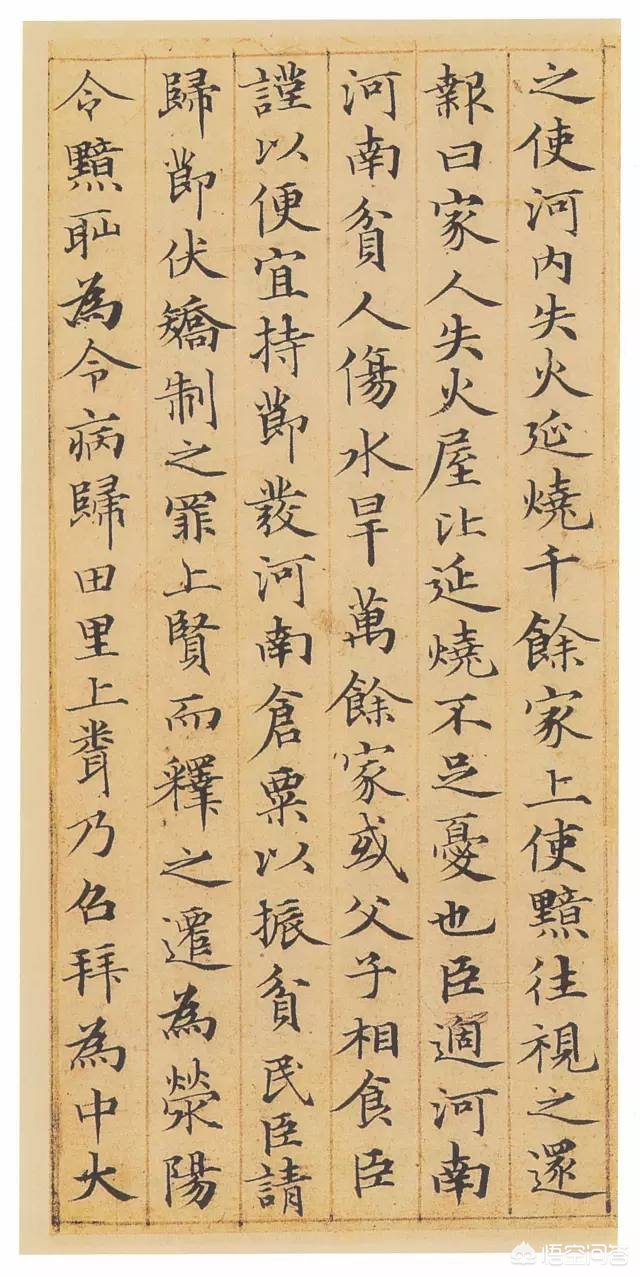 之使河内失火延燒千餘家上使黯往視之還
報曰家人失火屋比延燒不足憂也臣適河南
河南貧人傷水旱萬餘家或父子相食臣
謹以便宜持節發河南倉粟以振貧民臣請
歸節伏矯制之罪上賢而釋之遷為滎陽
令黯恥為令病歸田里上聞乃召拜為中大
悟空问答